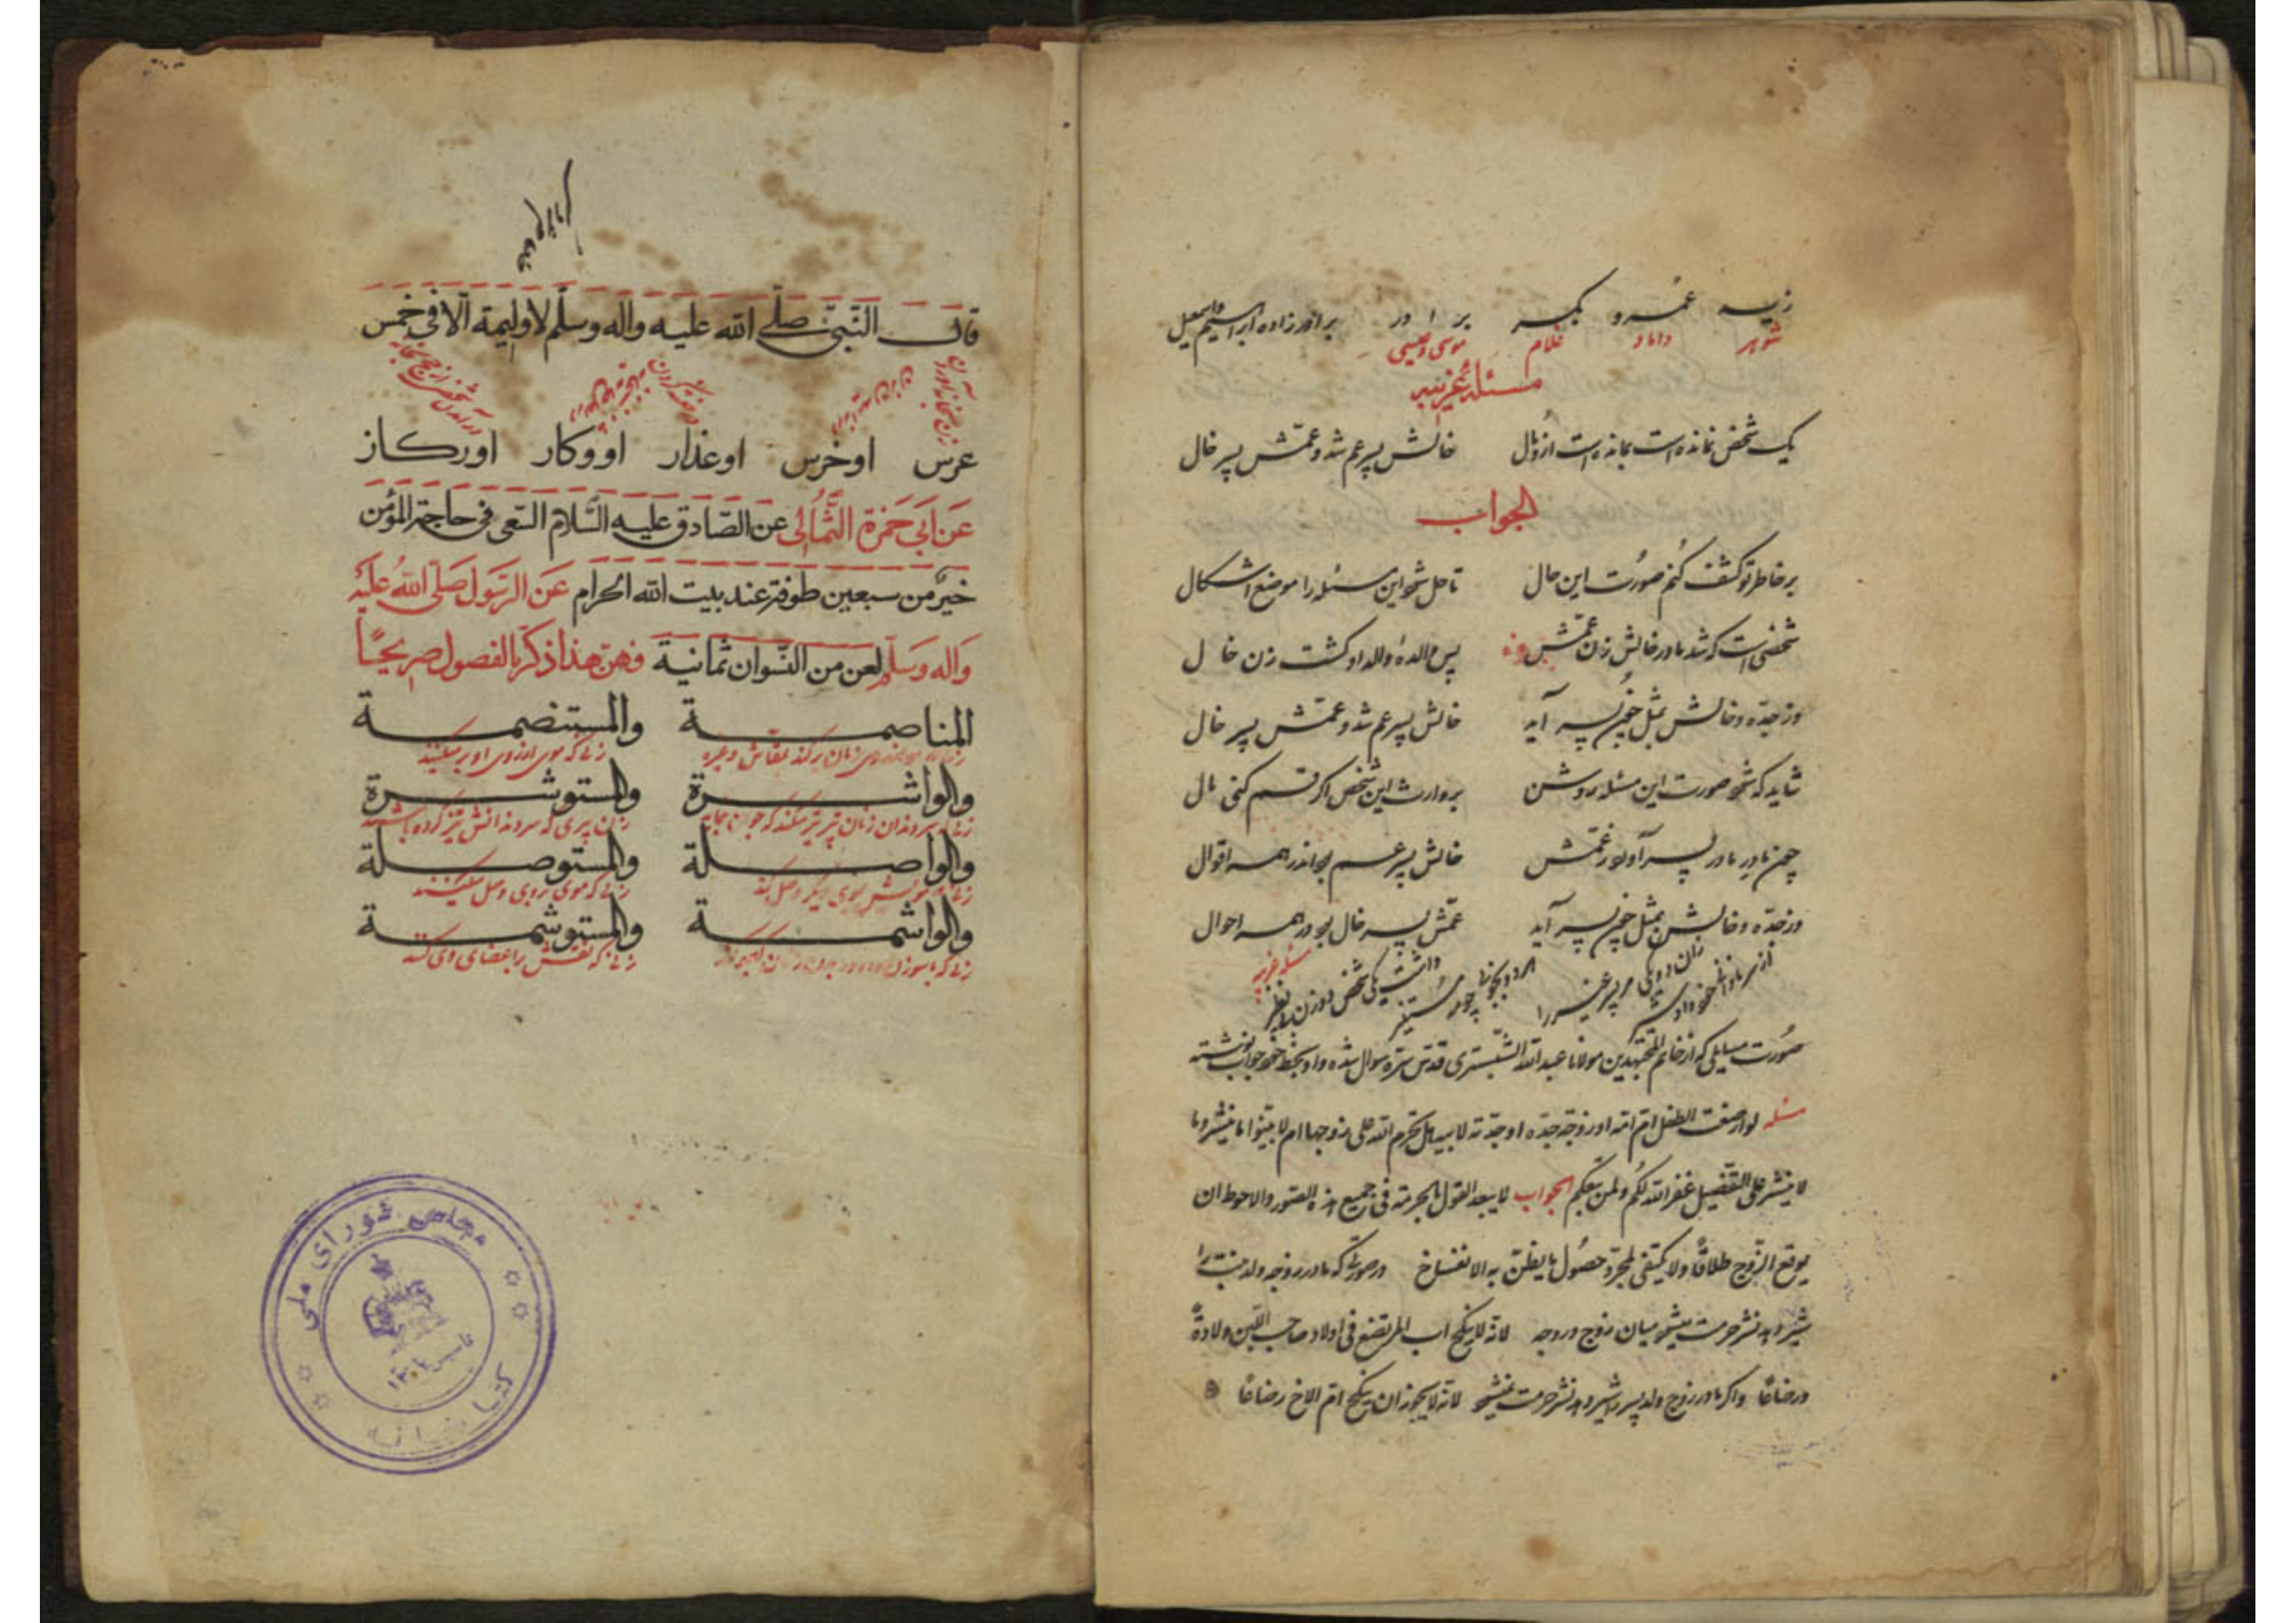 زید عمرو بکر برادر برادرزاده ابراهیم واسمعیل
شوهر داماد غلام موسی وعیسی
مسئلهٔ غریبه
یک شخص نمانده است بمانده است ازو مال خالش پسر عم شد و عمّش پسر خال
الجواب
بر خاطر تو کشف کنم صورت این حال تا حل شود این مسئله را موضع اشکال
شخصی است که شد مادر خالش زن عمّش پس والدهٔ والد او گشت زن خال
وز جدّه و خالش بمثل چون پسر آید خالش پسر عم شد و عمّش پسر خال
شاید که شود صورت این مسئله روشن بر وارث این شخص اگر قسم کنی مال
چون مادر مادر پسر آورد ز عمّش خالش پسر عم بود اندر همه اقوال
وز جدّه و خالش بمثل چون پسر آید عمّش پسر خال بود در همه احوال
مسئله غریبه
صورت مسایلی که از خاتم المجتهدین مولانا عبدالله الشبستری قدس سره سوال شده و او بخط خود جواب نوشته
مسئله لو ارضعت الطفل ام امه او زوجة جده او جدته لابیه هل تحرم امه علی زوجها ام لا بینوا ما ینشر وما
لا ینشر علی التفصیل غفر الله لکم ولمن یتبعکم الجواب لا یبعد القول بالحرمة فی جمیع هذه الصور والاحوط ان
یوقع الزوج طلاقا ولا یکتفی بمجرد حصول ما یظن به الانفساخ در صورتی که مادر زوجه ولد بنت را
شیر دهد نشر حرمت میشود میان زوج و زوجه لانه لا ینکح اب المرتضع فی اولاد صاحب اللبن ولادةً
ورضاعًا واگر مادر زوج ولد پسر را شیر دهد نشر حرمت نمیشود لانه لا یجوز ان ینکح ام الاخ رضاعًا
قال النبی صلی الله علیه واله وسلم لا ولیمة الا فی خمس
عرس او خرس او عذار او وکار او رکاز
عن ابی حمزة الثمالی عن الصادق علیه السلام السعی فی حاجة المؤمن
خیر من سبعین طوفة عند بیت الله الحرام عن الرسول صلی الله علیه
واله وسلم لعن من النسوان ثمانیة فهن هذا ذکر بالفصول صریحیا
المناصمة والمستنصمة
زنی که موی از روی او بر میکنند
والواشرة والمستوشرة
زن پیری که سر دندانش تیز کرده باشند
والواصلة والمستوصلة
زنی که موی بر وی وصل میکنند
والواشمة والمستوشمة
زنی که نقش را بر اعضای وی کنند
کتابخانه مجلس شورای ملی
تأسیس ۱۳۰۲